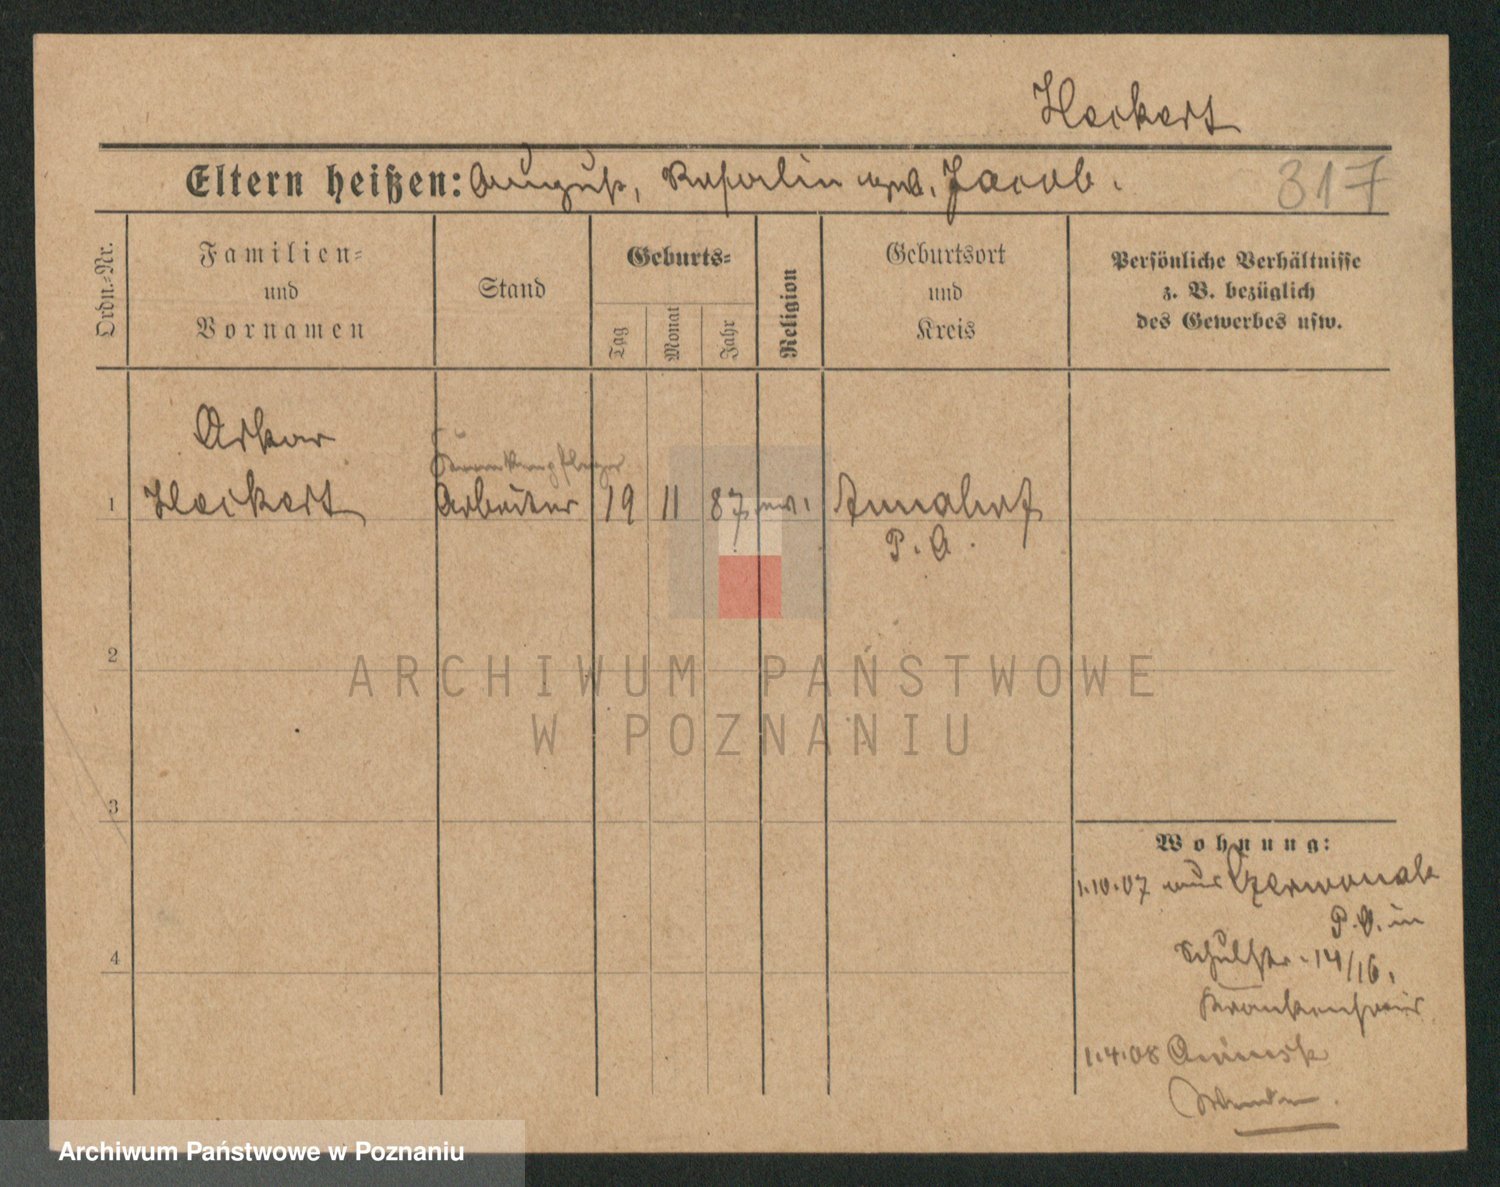 Heckert
Eltern heißen: August, Rosalin geb. Jacob.
317
Ordn.=Nr.
Familien=
und
Vornamen
Stand
Geburts=
Tag
Monat
Jahr
Religion
Geburtsort
und
Kreis
Persönliche Verhältnisse
z. B. bezüglich
des Gewerbes usw.
Oskar
Krankenpfleger
1 Heckert Arbeiter 19 11 87 ev. Annahof
P. O.
2
ARCHIWUM PAŃSTWOWE
W POZNANIU
3
Wohnung:
1.10.07 aus Czerwonak
P. O. in
4
Schulstr. 14/16,
Krankenhaus
1.4.08
Wenden.
Archiwum Państwowe w Poznaniu